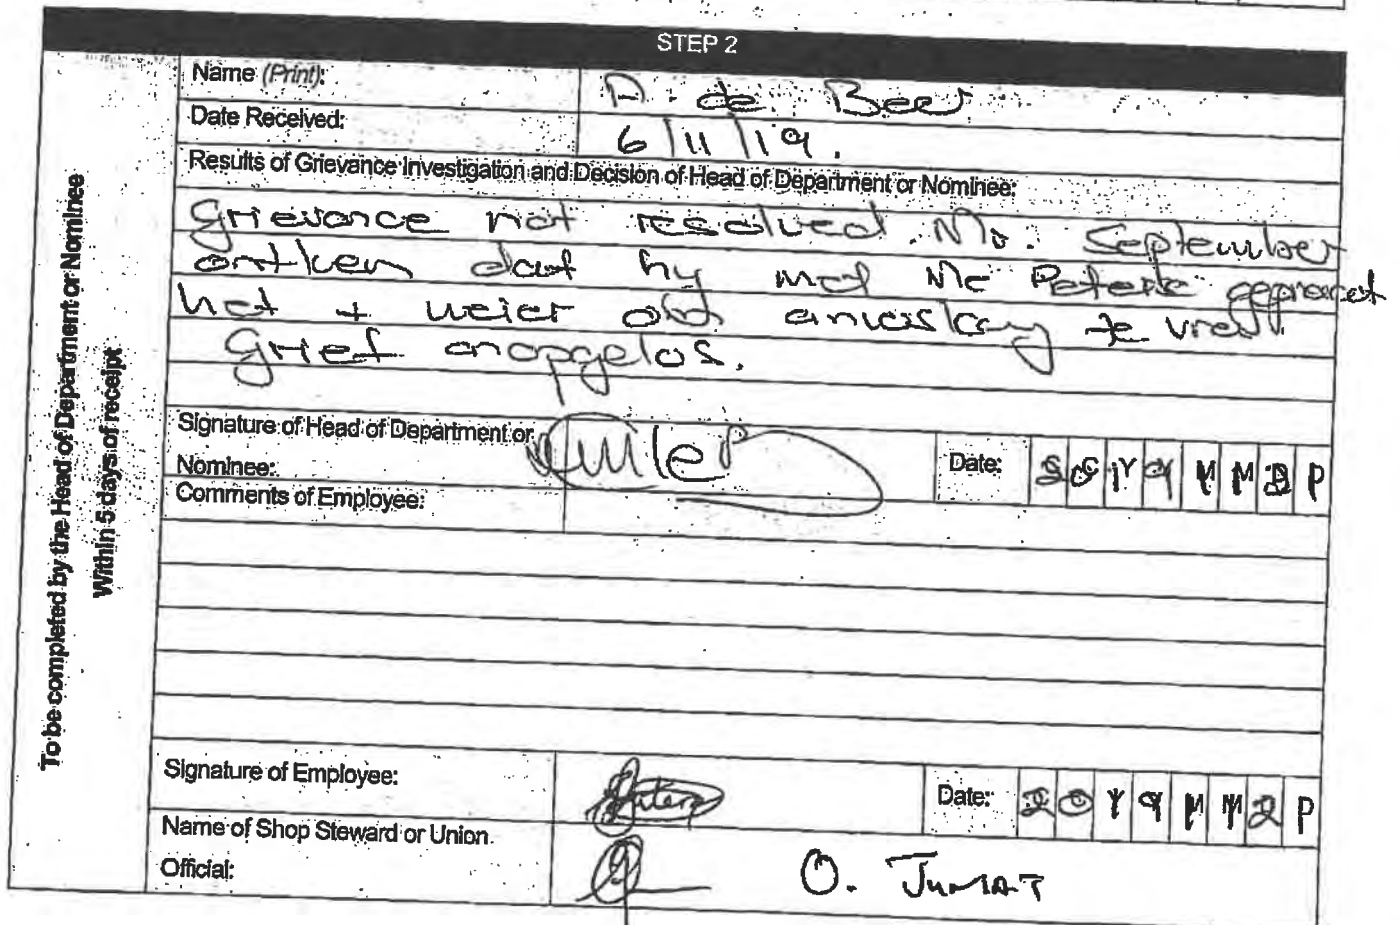 STEP 2
To be completed by the Head of Department or Nominee
Within 5 days of receipt
Name (Print): A. de Beer
Date Received: 6/11/19.
Results of Grievance Investigation and Decision of Head of Department or Nominee:
Grievance not resolved. Mr. September
ontken dat hy met Mr Peterse gepraat
het + weier om enige te vra
Grief onopgelos.
Signature of Head of Department or
Nominee:
Date: 2019
Comments of Employee:
Signature of Employee:
Date: 2019
Name of Shop Steward or Union
Official: O. JUMAT